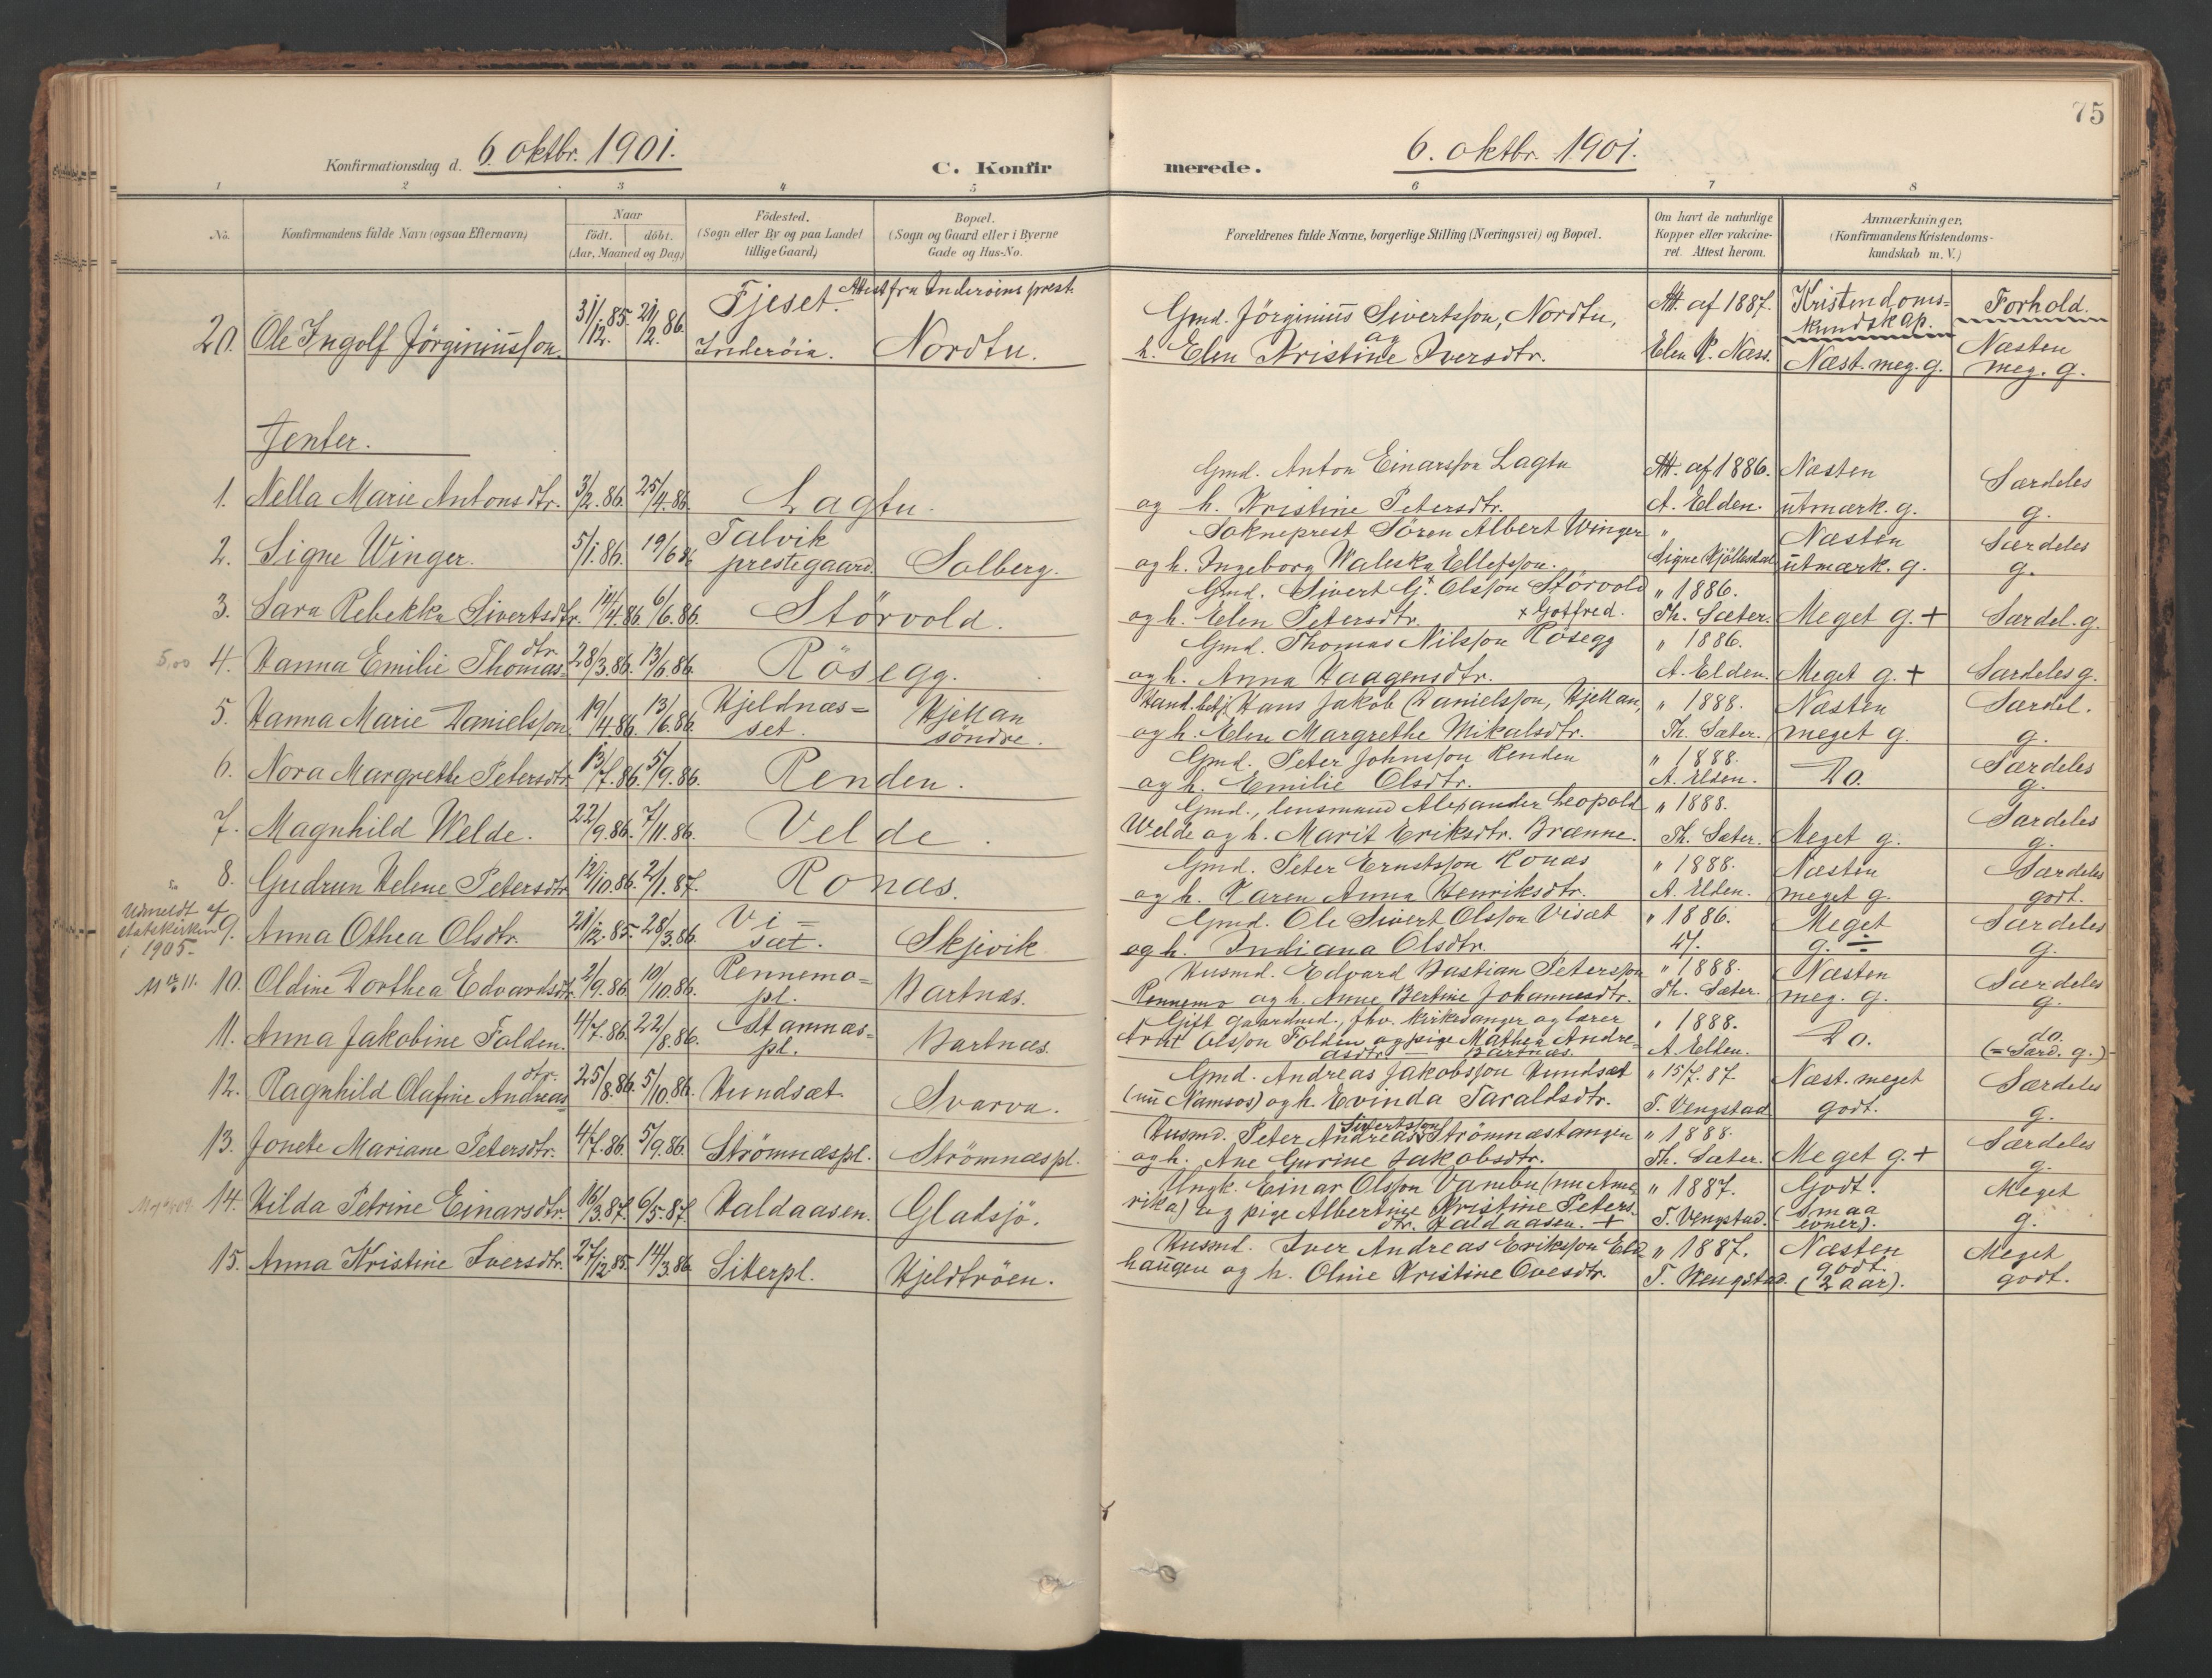 75
Konfirmationsdag d. 6. oktbr. 1901. C. Konfirmerede. 6. oktbr. 1901.
1 2 3 4 5 6 7 8
No.
Konfirmandens fulde Navn (ogsaa Efternavn)
Naar
födt. döbt.
(Aar, Maaned og Dag)
Födested.
(Sogn eller By og paa Landet
tillige Gaard)
Bopæl.
(Sogn og Gaard eller i Byerne
Gade og Hus-No.
Forældrenes fulde Navne, borgerlige Stilling (Næringsvei) og Bopæl.
Om havt de naturlige
Kopper eller vakcine-
ret. Attest herom.
Anmærkninger.
(Konfirmandens Kristendoms-
kundskab m. V.)
Attest fra Inderöiens prest.
20. Ole Ingolf Jörginiusson. 31/12.85. 21/2.86. Fjeset. Inderöia. Nordtu.
Gmd. Jörginius Sivertsson, Nordtu,
og
h. Elen Kristine Iversdtr.
Att. af 1887.
Elen P. Næss.
Kristendoms-
kundskap.
Næst. meg. g.
Forhold.
Næsten
meg. g.
Jenter.
1. Nella Marie Antonsdtr. 3/2.86. 25/4.86. Lagtu.
Gmd. Anton Einarsson Lagtu
og h. Kristine Petersdtr.
Att. af 1886.
A. Elden.
Næsten
utmærk. g.
Særdeles
g.
2. Signe Winger. 5/1.86. 19/6 86 Talvik
prestegaard. Solberg.
Sokneprest Sören Albert Winger
og h. Ingeborg Waleska Ellefsson.
"
Signe Kjöllesdal
Næsten
utmærk. g.
Særdeles
g.
3. Sara Rebekka Sivertsdtr. 14/4.86. 6/6.86. Störvold.
Gmd. Sivert G.+ Olsson Störvold
og h. Elen Petersdtr. + Gotfred.
" 1886.
Th. Sæter.
Meget g. +
Særdel. g.
5,00 4. Hanna Emilie Thomas-
dtr. 28/3.86. 13/6.86. Rösegg.
Gmd. Thomas Nilsson Rösegg
og h. Anna Haagensdtr.
" 1886.
A. Elden.
Meget g. +
Særdeles g.
5. Hanna Marie Danielsson 19/4.86. 13/6.86. Kjeldnæs-
set. Kjelkan
söndre.
Hand.betj. Hans Jakob Danielsson, Kjelkan,
og h. Elen Margrethe Mikalsdtr.
" 1888.
Th. Sæter.
Næsten
meget g.
Særdel.
g.
6. Nora Margrethe Petersdtr 13/7.86. 5/9.86. Renden.
Gmd. Peter Johnsson Renden
og h. Emilie Olsdtr.
" 1888.
A. Elden.
Do.
Særdeles
g.
7. Magnhild Welde. 22/9.86. 7/11.86. Velde.
Gmd., lensmand Alexander Leopold
Welde og h. Marit Eriksdtr. Brænne.
" 1888.
Th. Sæter.
Meget g.
Særdeles
g.
8. Gudrun Helene Petersdtr 12/10.86. 2/1.87. Ronæs.
Gmd. Peter Ernstsson Ronæs
og h. Karen Anna Henriksdtr.
" 1888.
A. Elden.
Næsten
meget g.
Særdeles
godt.
Udmeldt af
statskirken
i 1905.
9. Anna Othea Olsdtr. 21/12.85. 28/3.86. Vi-
sæt. Skjevik.
Gmd. Ole Sivert Olsson Visæt
og h. Indiana Olsdtr.
" 1886.
Meget
g. ÷
Særdeles
g.
10. Oldine Dorthea Edvardsdtr. 2/9.86. 10/10.86. Rennemo-
pl. Bartnæs.
Husmd. Edvard Bastian Petersson
Rennemo og h. Anne Bertine Johannesdtr.
" 1888.
Th. Sæter.
Næsten
meg. g.
Særdeles
g.
11. Anna Jakobine Folden. 4/7.86. 22/8.86. Stamnæs-
pl. Bartnæs.
Gift gaardmd., fhv. kirkesanger og lærer
Arnt Olsson Folden og pige Mathea Andre-
asdtr. - Bartnæs.
" 1888.
A. Elden.
Do.
do.
(= Særd. g.)
12. Ragnhild Olafine Andreas-
dtr. 25/8.86. 5/10.86. Hundsæt. Svarva.
Gmd. Andreas Jakobsson Hundsæt
(nu Namsos) og h. Evinda Taraldsdtr.
" 15/7.87.
T. Vengstad
Næst. meget
godt.
Særdeles
g.
13. Jonete Mariane Petersdtr. 4/7.86. 5/9.86. Strömnæspl. Strömnæspl.
Husmd. Peter Andreas Sivertsson Strömnæstangen
og h. Ane Gurine Jakobsdtr.
" 1888.
Th. Sæter.
Meget g. +
Særdeles
g.
14. Hilda Petrine Einarsdtr. 16/3.87. 6/5.87. Haldaasen. Gladsjö.
Ungk. Einar Olsson Vanebu (nu Ame-
rika) og pige Albertine Kristine Peters-
dtr. Haldaasen. +
" 1887.
T. Vengstad.
Godt.
(smaa
evner).
Meget
g.
15. Anna Kristine Iversdtr. 27/12 85. 14/3.86 Siterpl. Kjeldtröen.
Husmd. Iver Andreas Eriksson Eld-
haugen og h. Oline Kristine Ovesdtr.
" 1887.
T. Vengstad.
Næsten
godt.
(2 aar).
Meget
godt.